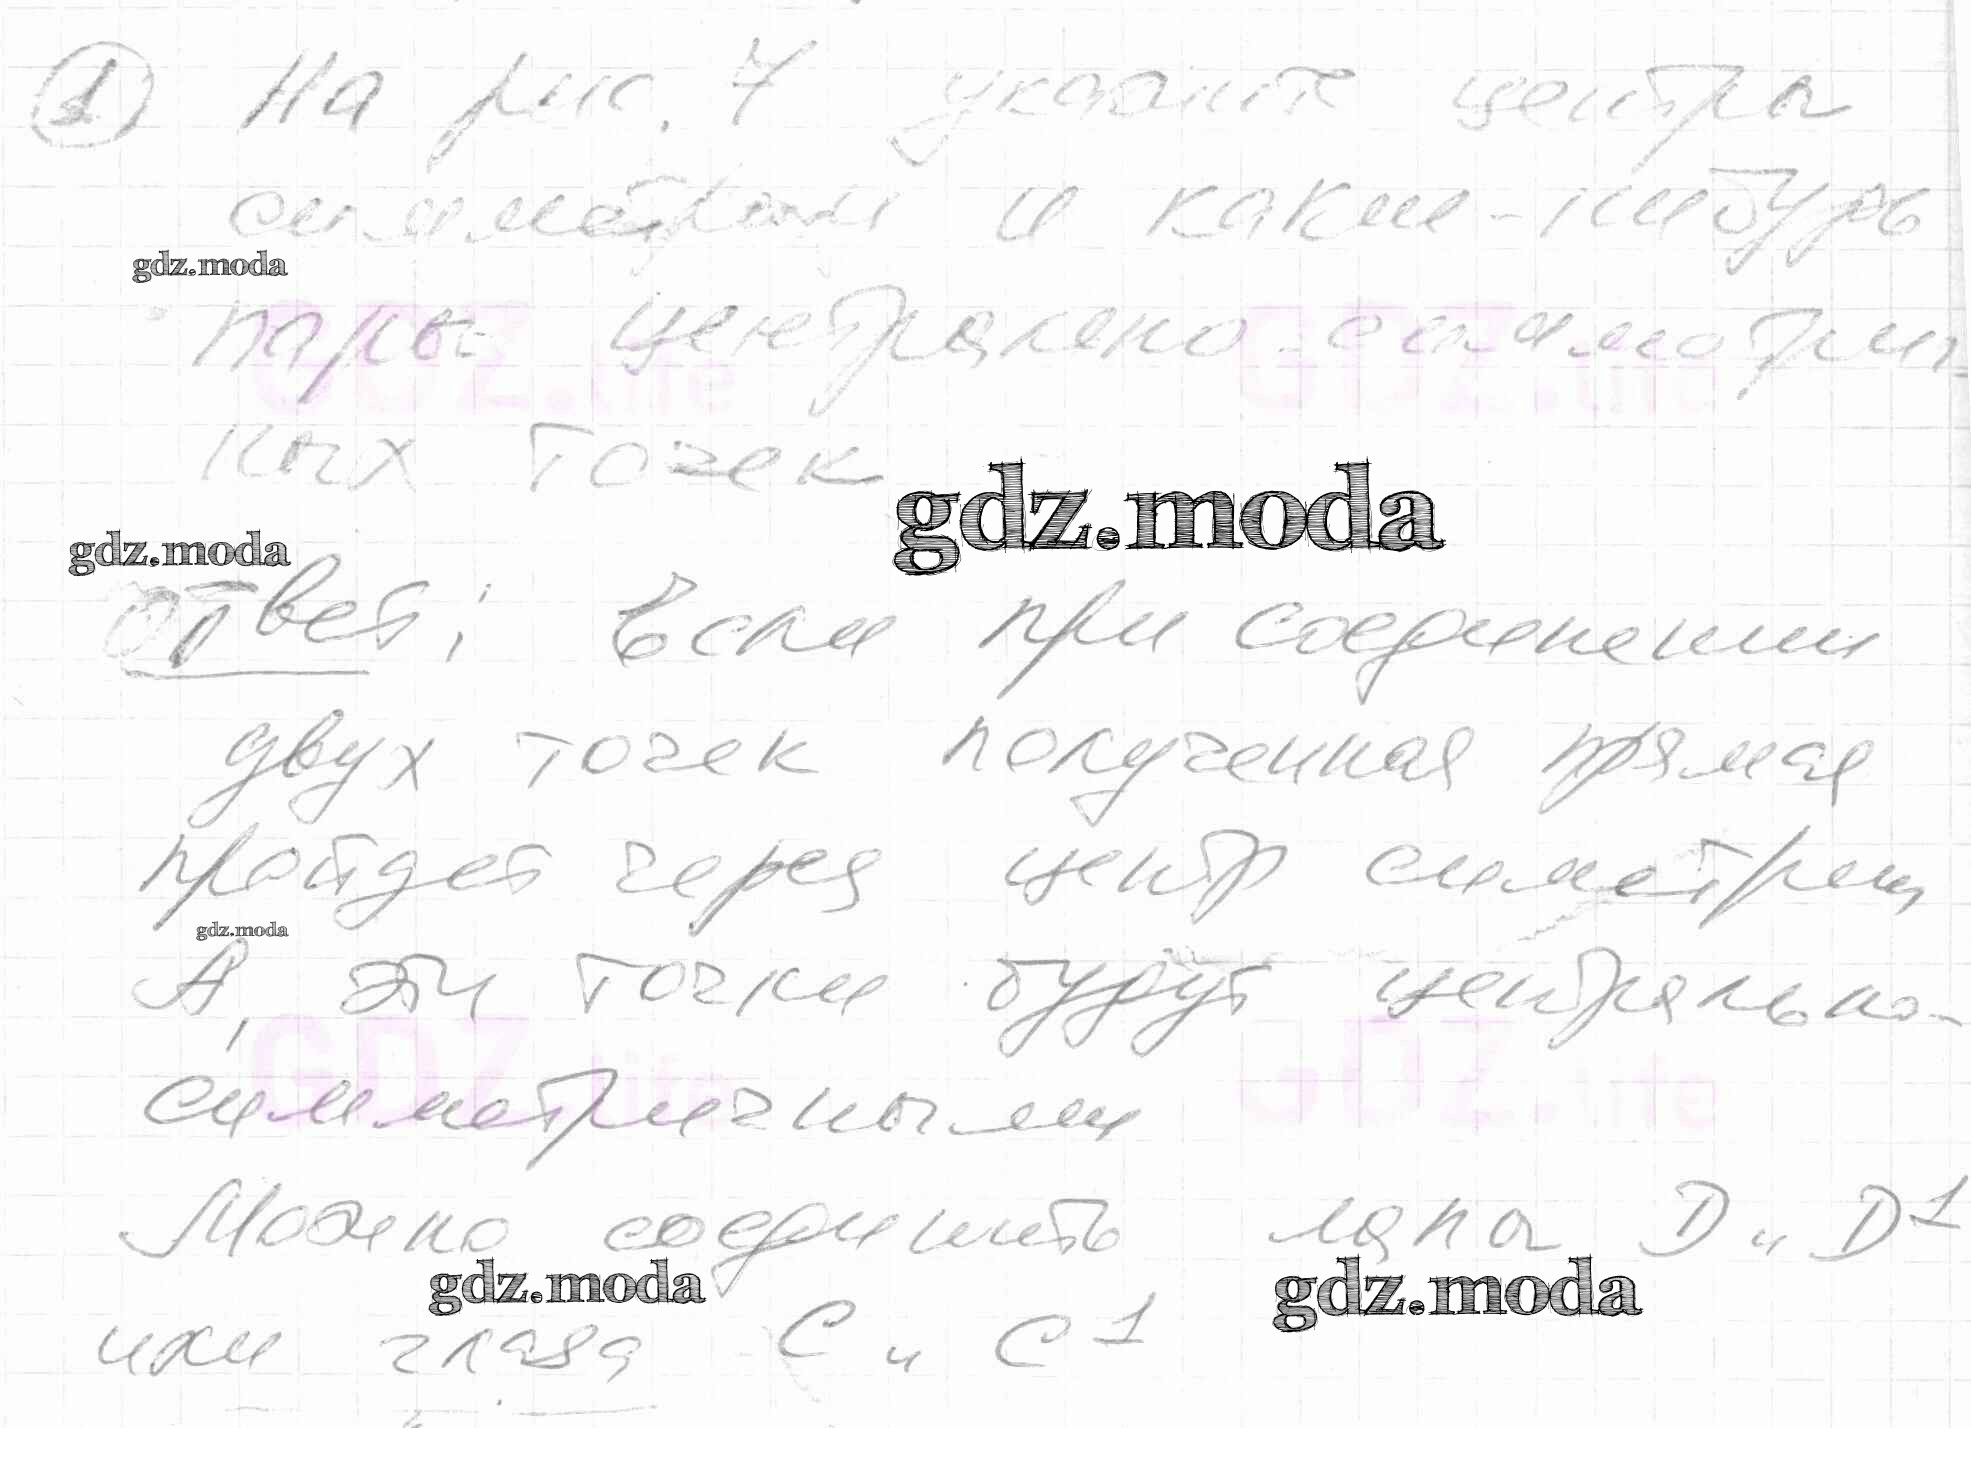 1 На рис. 7 укажите центры
симметрии и какие-нибудь
gdz.moda
пары центрально-симметрич-
GDZ.life GDZ.life
ных точек
gdz.moda
gdz.moda
Ответ: Если при соединении
двух точек полученная прямая
пройдет через центр симетрии
gdz.moda
А, эти точки будут центрально-
GDZ.life GDZ.life
симметричными
Можно соединить лапы D и D¹
gdz.moda gdz.moda
или глаза С и С¹